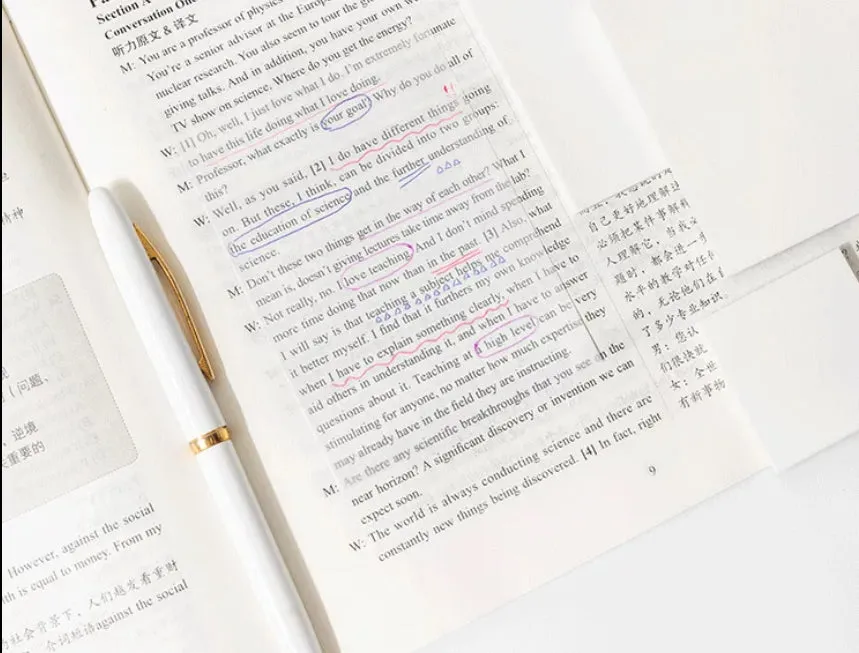 Section A
Conversation One
听力原文 & 译文
M: You are a professor of physics
You're a senior advisor at the Europe
nuclear research. You also seem to tour the
giving talks. And in addition, you have your own
TV show on science. Where do you get the energy?
W: [1] Oh, well, I just love what I do. I'm extremely fortunate
to have this life doing what I love doing.
M: Professor, what exactly is your goal? Why do you do all of
this?
W: Well, as you said, [2] I do have different things going
on. But these, I think, can be divided into two groups:
the education of science and the further understanding of
science.
M: Don't these two things get in the way of each other? What I
mean is, doesn't giving lectures take time away from the lab?
W: Not really, no. I love teaching. And I don't mind spending
more time doing that now than in the past. [3] Also, what
I will say is that teaching a subject helps me comprehend
it better myself. I find that it furthers my own knowledge
when I have to explain something clearly, when I have to
aid others in understanding it, and when I have to answer
questions about it. Teaching at a high level can be very
stimulating for anyone, no matter how much expertise they
may already have in the field they are instructing.
M: Are there any scientific breakthroughs that you see on the
near horizon? A significant discovery or invention we can
expect soon.
W: The world is always conducting science and there are
constantly new things being discovered. [4] In fact, right
9
自己更好地理解
必须把某件事解释
人理解它，当我
题时，都会进一步
水平的教学对任何
的，无论他们在
了多少专业知识。
男：您认
们很快就
女：全世
有新事物
精神
（问题、
、逆境
重要的
However, against the social
th is equal to money. From my
社会背景下，人们越发看重财
介词短语against the social